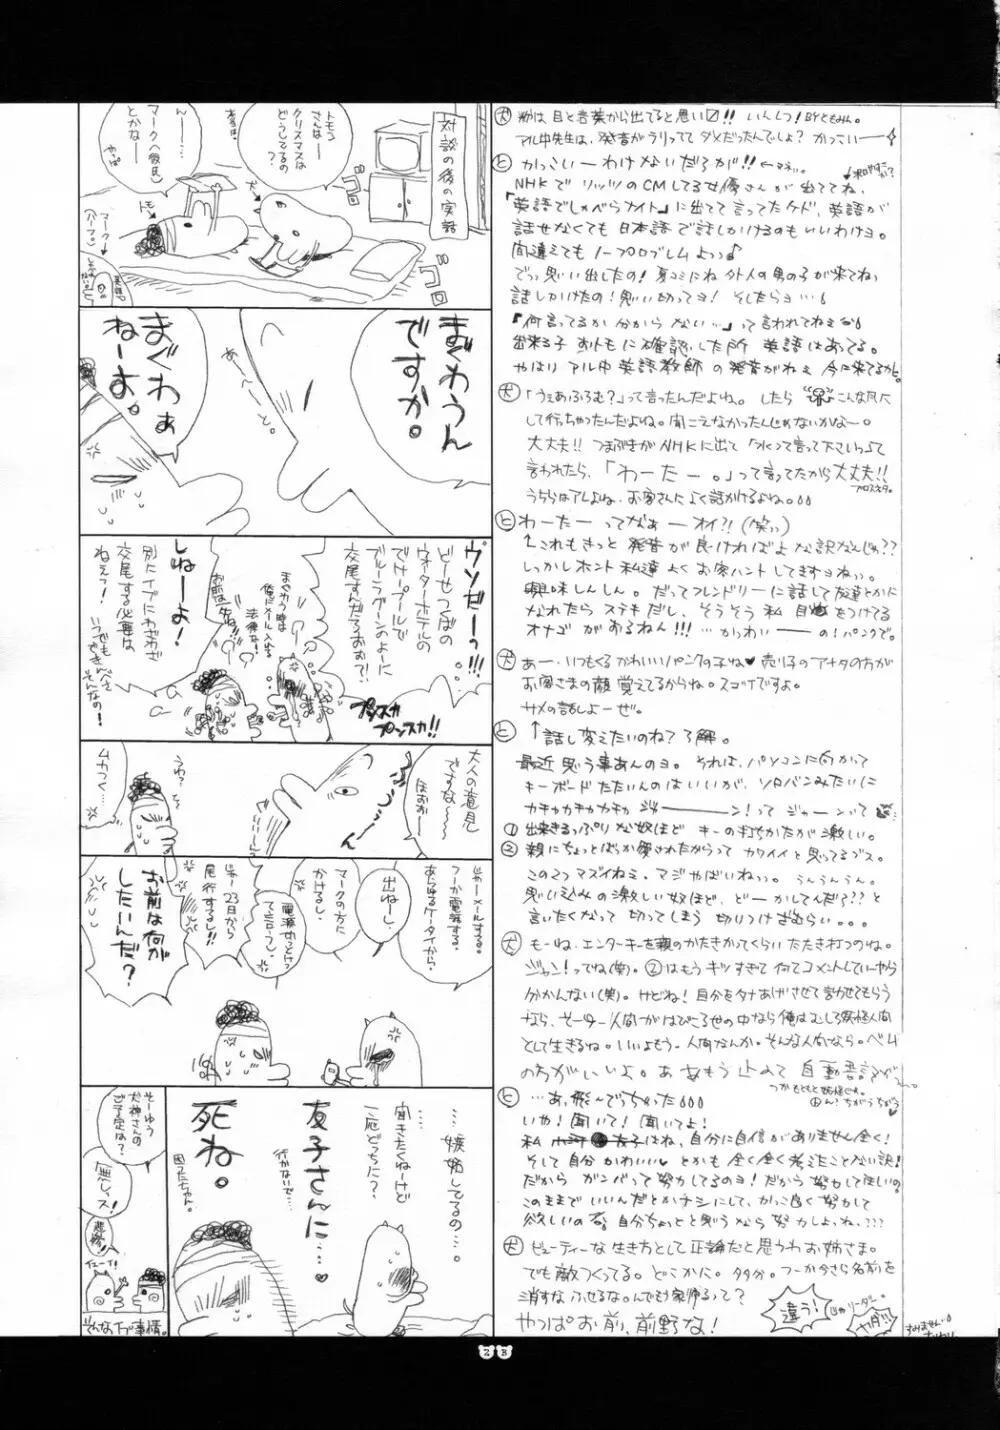 対談の後の実話
トモコ
さんは
クリスマスは
どうしてるの
？
ん——
マークへ(彼氏)
とかなー
やっぱ
犬
トモ
マーク
ゴロ
ゴロ
まぐわうん
ですか。
まぐわぁ
ねーよ。
ウソだーっ!!
どーせつばの
ウォーターホテルの
でけープールで
ブルーラグーンのよーに
交尾すんだろおお?!
まぐわう時は
俺にメール入れる
法律な!
しねーよ!
別にイブにわざわざ
交尾する必要は
ねぇっ!
いつでも
プンスカ
プンスカ!!
大人の意見
ですな〜〜
ほおお——
うわ?
ムカつく…
じゃーメールする。
フーか電話する。
あらゆるケータイから。
出ねーし。
マークの方に
かけるし。
じゃー23日から
尾行するし!!
お前は何が
したいんだ？
…嫉妬してるの…。
聞きたくねーけど
一応どっちに？
友子さんに……♥
行かないで…
死ね。
そーゆう
犬神さんの
ご予定は？
「無しィス」
悲惨へ
イエーイ!
そんなイブ事情。
犬 粉は目と音葉から出てると思い〼!! いんしつ! BYともみん。
アル中先生は、発音がラリってて ダメだったんでしょ? かっこいー
と かっこいーわけないだろが!!
NHKで リッツのCMしてる女優さんが出ててね、
「英語でしゃべらナイト」に出てて言ってたケド、英語が
話せなくても 日本語で話しかけるのもいいわけヨ。
間違えても ノープロブレムよっっ♪
でっっ思い出したの! 夏コミにね 外人の男の子が来てねっ
話しかけたの! 思い切ってヨ! そしたらヨ…
『何言ってるか分からない…』って言われてねぇ
出来る子 おトモに確認した所 英語はあってる。
やはり アル中英語教師の発音がねぇ 今に来てるかと。
犬 「うぇあふろむ?」って言ったんだよね。したら こんな尺に
して行っちゃったんだよね。聞こえなかったんじゃないかなー。
大丈夫!! つまぶきがNHKに出て「水って言って下さいっっ」て
言われたら、「わーたー。」って言ってたから大丈夫!!
うちらはアレよね、お客さんによく話かけるよね。
と わーたー ってなぁー オイ?! (笑っっ)
↑これもきっと 発音が良ければよな訳なんじゃ??
しっかしホント 私達よくお客ハントしてますヨねっっ。
興味しんしん。だってフレンドリーに話して友達とかに
なれたら ステキだし、そうそう 私 目をつけてる
オナゴがおるねん!!! …かっわいーの! パンクで。
犬 あー、いつもくるかわいいパンクの子ね♥ 売り子のアナタの方が
お客さまの顔覚えてるからね。スゴイですよ。
サメの話しよーぜ。
と ↑話し変えたいのね? 了解。
最近思う事あんのヨ。それは、パソコンに向かって
キーボードたたいんのはいいが、ソロバンみたいに
カチャカチャカチャ ジャーーン! って ジャーンって
① 出来るっぷりな奴ほど キーの打ちかたが激しい。
② 親にちょっとばっか愛されたからって カワイイと思ってるブス。
この2つ マズイねぇ、マジやばいねっっ。うんうんうん。
思い込みの激しい奴ほど、どーかしてんだ??? と
言いたくなって 切ってしまう 切りつけざむらい。。。
犬 もーね、エンターキーを親のかたきかってくらい たたき打つのね。
ジャン!ってね(笑)。②はもうキツすぎて何てコメントしていーやら
分かんない(笑)。けどね! 自分をタナあげさせて言わせてもらう
なら、そーゆー人間がはびこる世の中なら俺はむしろ妖怪人間
として生きるね。いいよもう、人間なんか。そんな人間なら。ベム
の方がいいよ。ああもう止めて 自動書記が
と …あ、飛んでっちゃった
いや! 聞いて! 聞いてよ!
私 友子はね、自分に自信がありません全く!
そして自分かわいい♥ とかも全く全く考えたことない訳!
だから ガンバって努力してるのヨ! だから 努力してほしいの。
このままでいいんだとかナシにして、かっこ良く努力して
欲しいの 自分ちょっとと思うなら努力しよ、ね、???
犬 ビューティーな生き方として正論だと思うわお姉さま。
でも敵つくってる。どこかに。多分。フーか今さら名前を
消すな ふせるな。んでもう家帰るって?
やっぱお前、前野な!
違う!
じゃリーダー。
すみません
28